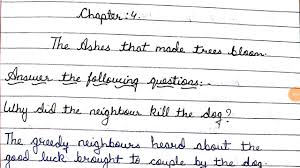 Chapter: 4.
The Ashes that made trees bloom.
Answer the following questions:-
Why did the neighbour kill the dog?
The greedy neighbours heard about the
good luck brought to couple by the dog.